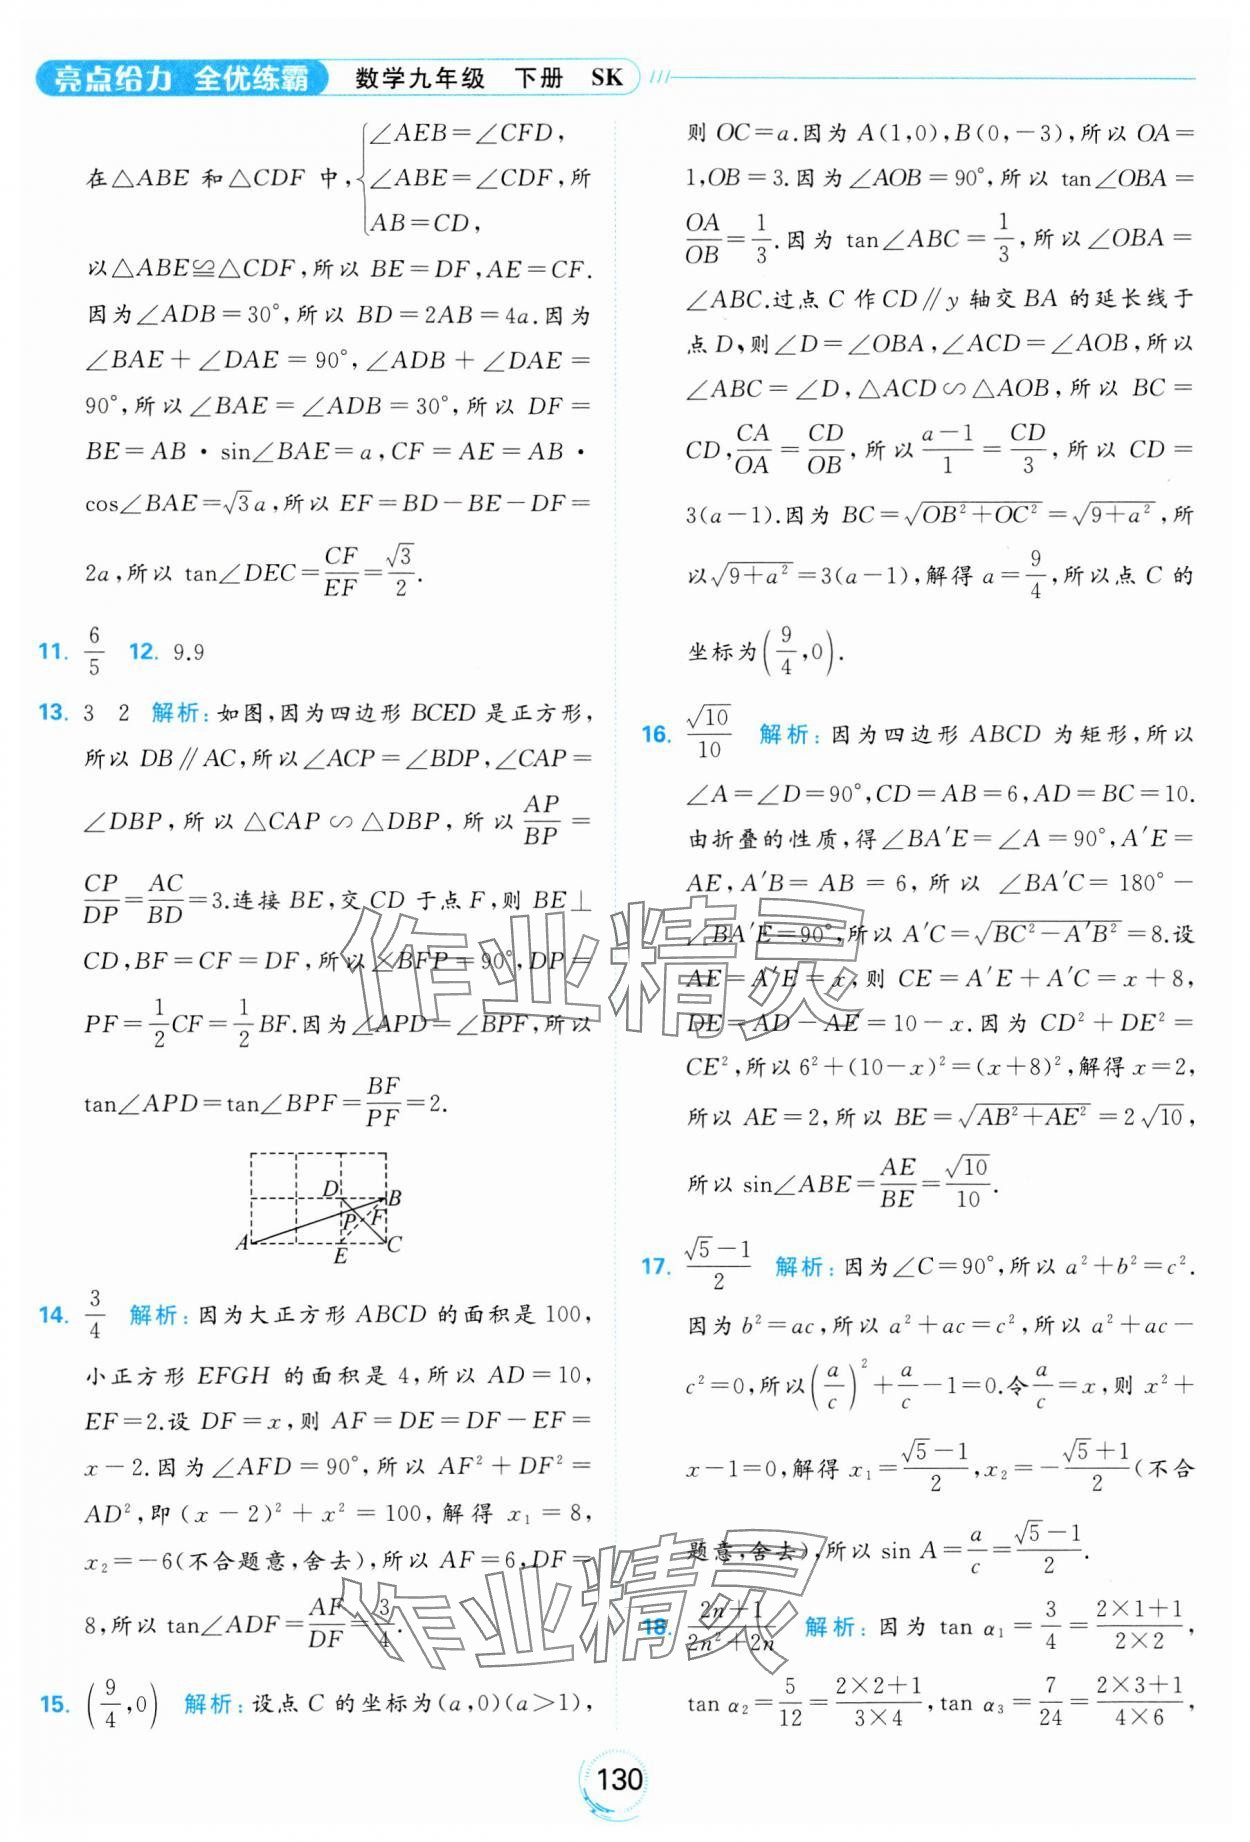 亮点给力 全优练霸 数学九年级 下册 SK
在△ABE 和△CDF 中, { ∠AEB=∠CFD,
∠ABE=∠CDF, 所
AB=CD,
以△ABE≌△CDF,所以 BE=DF,AE=CF.
因为∠ADB=30°,所以 BD=2AB=4a.因为
∠BAE+∠DAE=90°,∠ADB+∠DAE=
90°,所以∠BAE=∠ADB=30°,所以 DF=
BE=AB·sin∠BAE=a,CF=AE=AB·
cos∠BAE=√3a,所以 EF=BD-BE-DF=
2a,所以 tan∠DEC=CF/EF=√3/2.
11. 6/5 12. 9.9
13. 3 2 解析:如图,因为四边形 BCED 是正方形,
所以 DB∥AC,所以∠ACP=∠BDP,∠CAP=
∠DBP,所以△CAP∽△DBP,所以 AP/BP=
CP/DP=AC/BD=3.连接 BE,交 CD 于点 F,则 BE⊥
CD,BF=CF=DF,所以∠BFP=90°,DP=
PF=1/2CF=1/2BF.因为∠APD=∠BPF,所以
tan∠APD=tan∠BPF=BF/PF=2.
D B
P F
A E C
14. 3/4 解析:因为大正方形 ABCD 的面积是 100,
小正方形 EFGH 的面积是 4,所以 AD=10,
EF=2.设 DF=x,则 AF=DE=DF-EF=
x-2.因为∠AFD=90°,所以 AF²+DF²=
AD²,即(x-2)²+x²=100,解得 x₁=8,
x₂=-6(不合题意,舍去),所以 AF=6,DF=
8,所以 tan∠ADF=AF/DF=3/4.
15. (9/4,0) 解析:设点 C 的坐标为(a,0)(a>1),
则 OC=a.因为 A(1,0),B(0,-3),所以 OA=
1,OB=3.因为∠AOB=90°,所以 tan∠OBA=
OA/OB=1/3.因为 tan∠ABC=1/3,所以∠OBA=
∠ABC.过点 C 作 CD∥y 轴交 BA 的延长线于
点 D,则∠D=∠OBA,∠ACD=∠AOB,所以
∠ABC=∠D,△ACD∽△AOB,所以 BC=
CD,CA/OA=CD/OB,所以 (a-1)/1=CD/3,所以 CD=
3(a-1).因为 BC=√(OB²+OC²)=√(9+a²),所
以√(9+a²)=3(a-1),解得 a=9/4,所以点 C 的
坐标为(9/4,0).
16. √10/10 解析:因为四边形 ABCD 为矩形,所以
∠A=∠D=90°,CD=AB=6,AD=BC=10.
由折叠的性质,得∠BA′E=∠A=90°,A′E=
AE,A′B=AB=6,所以∠BA′C=180°-
∠BA′E=90°,所以 A′C=√(BC²-A′B²)=8.设
AE=A′E=x,则 CE=A′E+A′C=x+8,
DE=AD-AE=10-x.因为 CD²+DE²=
CE²,所以 6²+(10-x)²=(x+8)²,解得 x=2,
所以 AE=2,所以 BE=√(AB²+AE²)=2√10,
所以 sin∠ABE=AE/BE=√10/10.
17. (√5-1)/2 解析:因为∠C=90°,所以 a²+b²=c².
因为 b²=ac,所以 a²+ac=c²,所以 a²+ac-
c²=0,所以(a/c)²+a/c-1=0.令 a/c=x,则 x²+
x-1=0,解得 x₁=(√5-1)/2,x₂=-(√5+1)/2(不合
题意,舍去),所以 sin A=a/c=(√5-1)/2.
18. (2n+1)/(2n²+2n) 解析:因为 tan α₁=3/4=(2×1+1)/(2×2),
tan α₂=5/12=(2×2+1)/(3×4),tan α₃=7/24=(2×3+1)/(4×6),
130
作业精灵
作业精灵